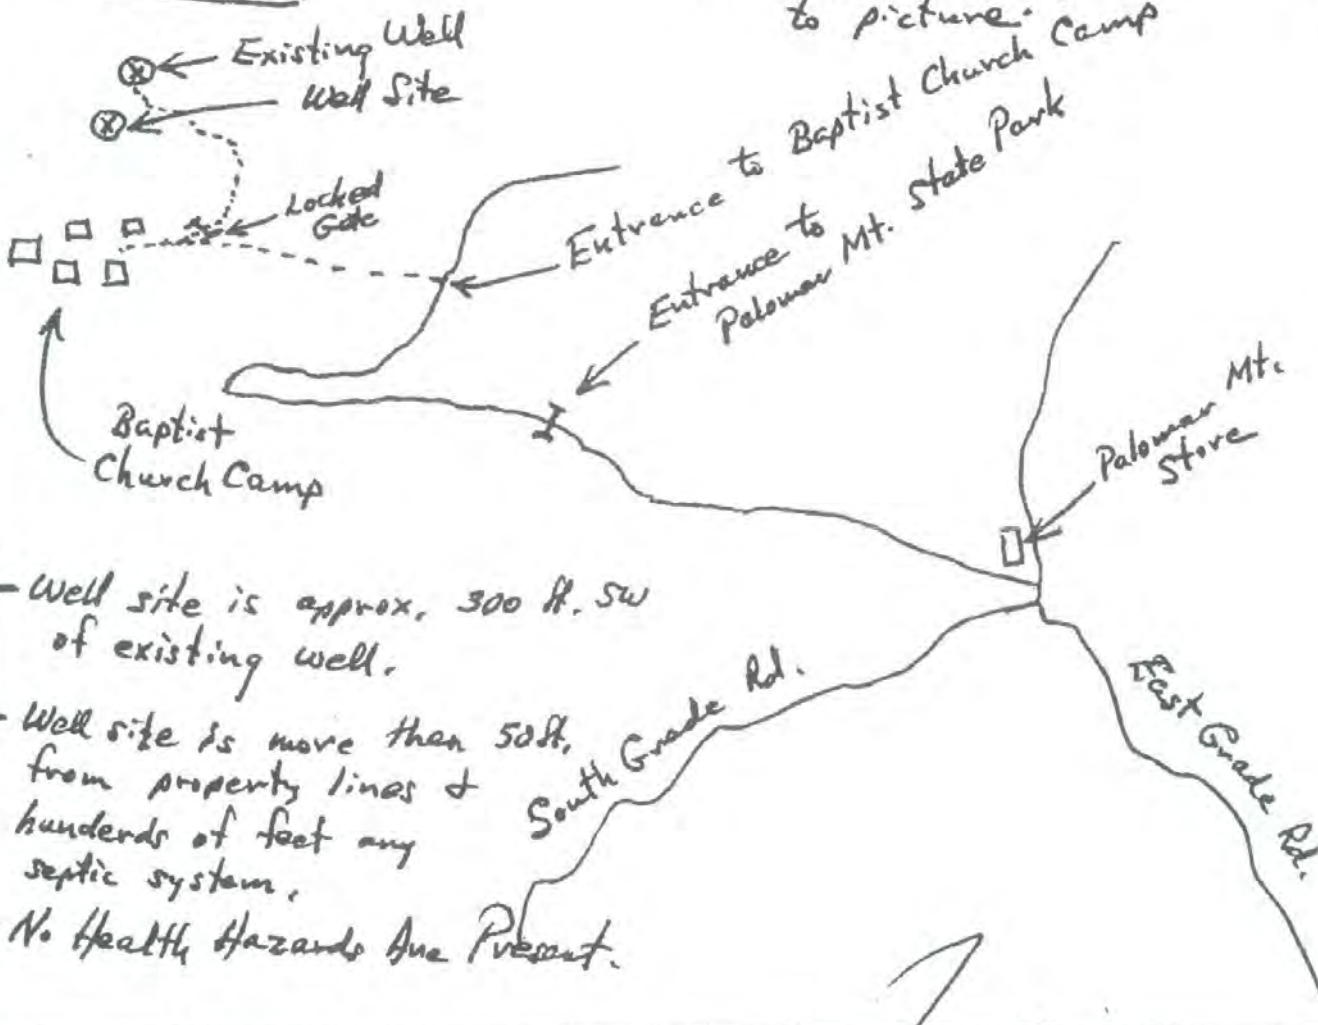 to picture.
Existing Well
Well Site
Locked
Gate
Entrance to Baptist Church Camp
Entrance to
Palomar Mt. State Park
Baptist
Church Camp
Palomar Mt.
Store
- Well site is approx. 300 ft. SW
of existing well.
- Well site is more than 50 ft.
from property lines &
hunderds of feet any
septic system.
No Health Hazards Are Present.
South Grade Rd.
East Grade Rd.